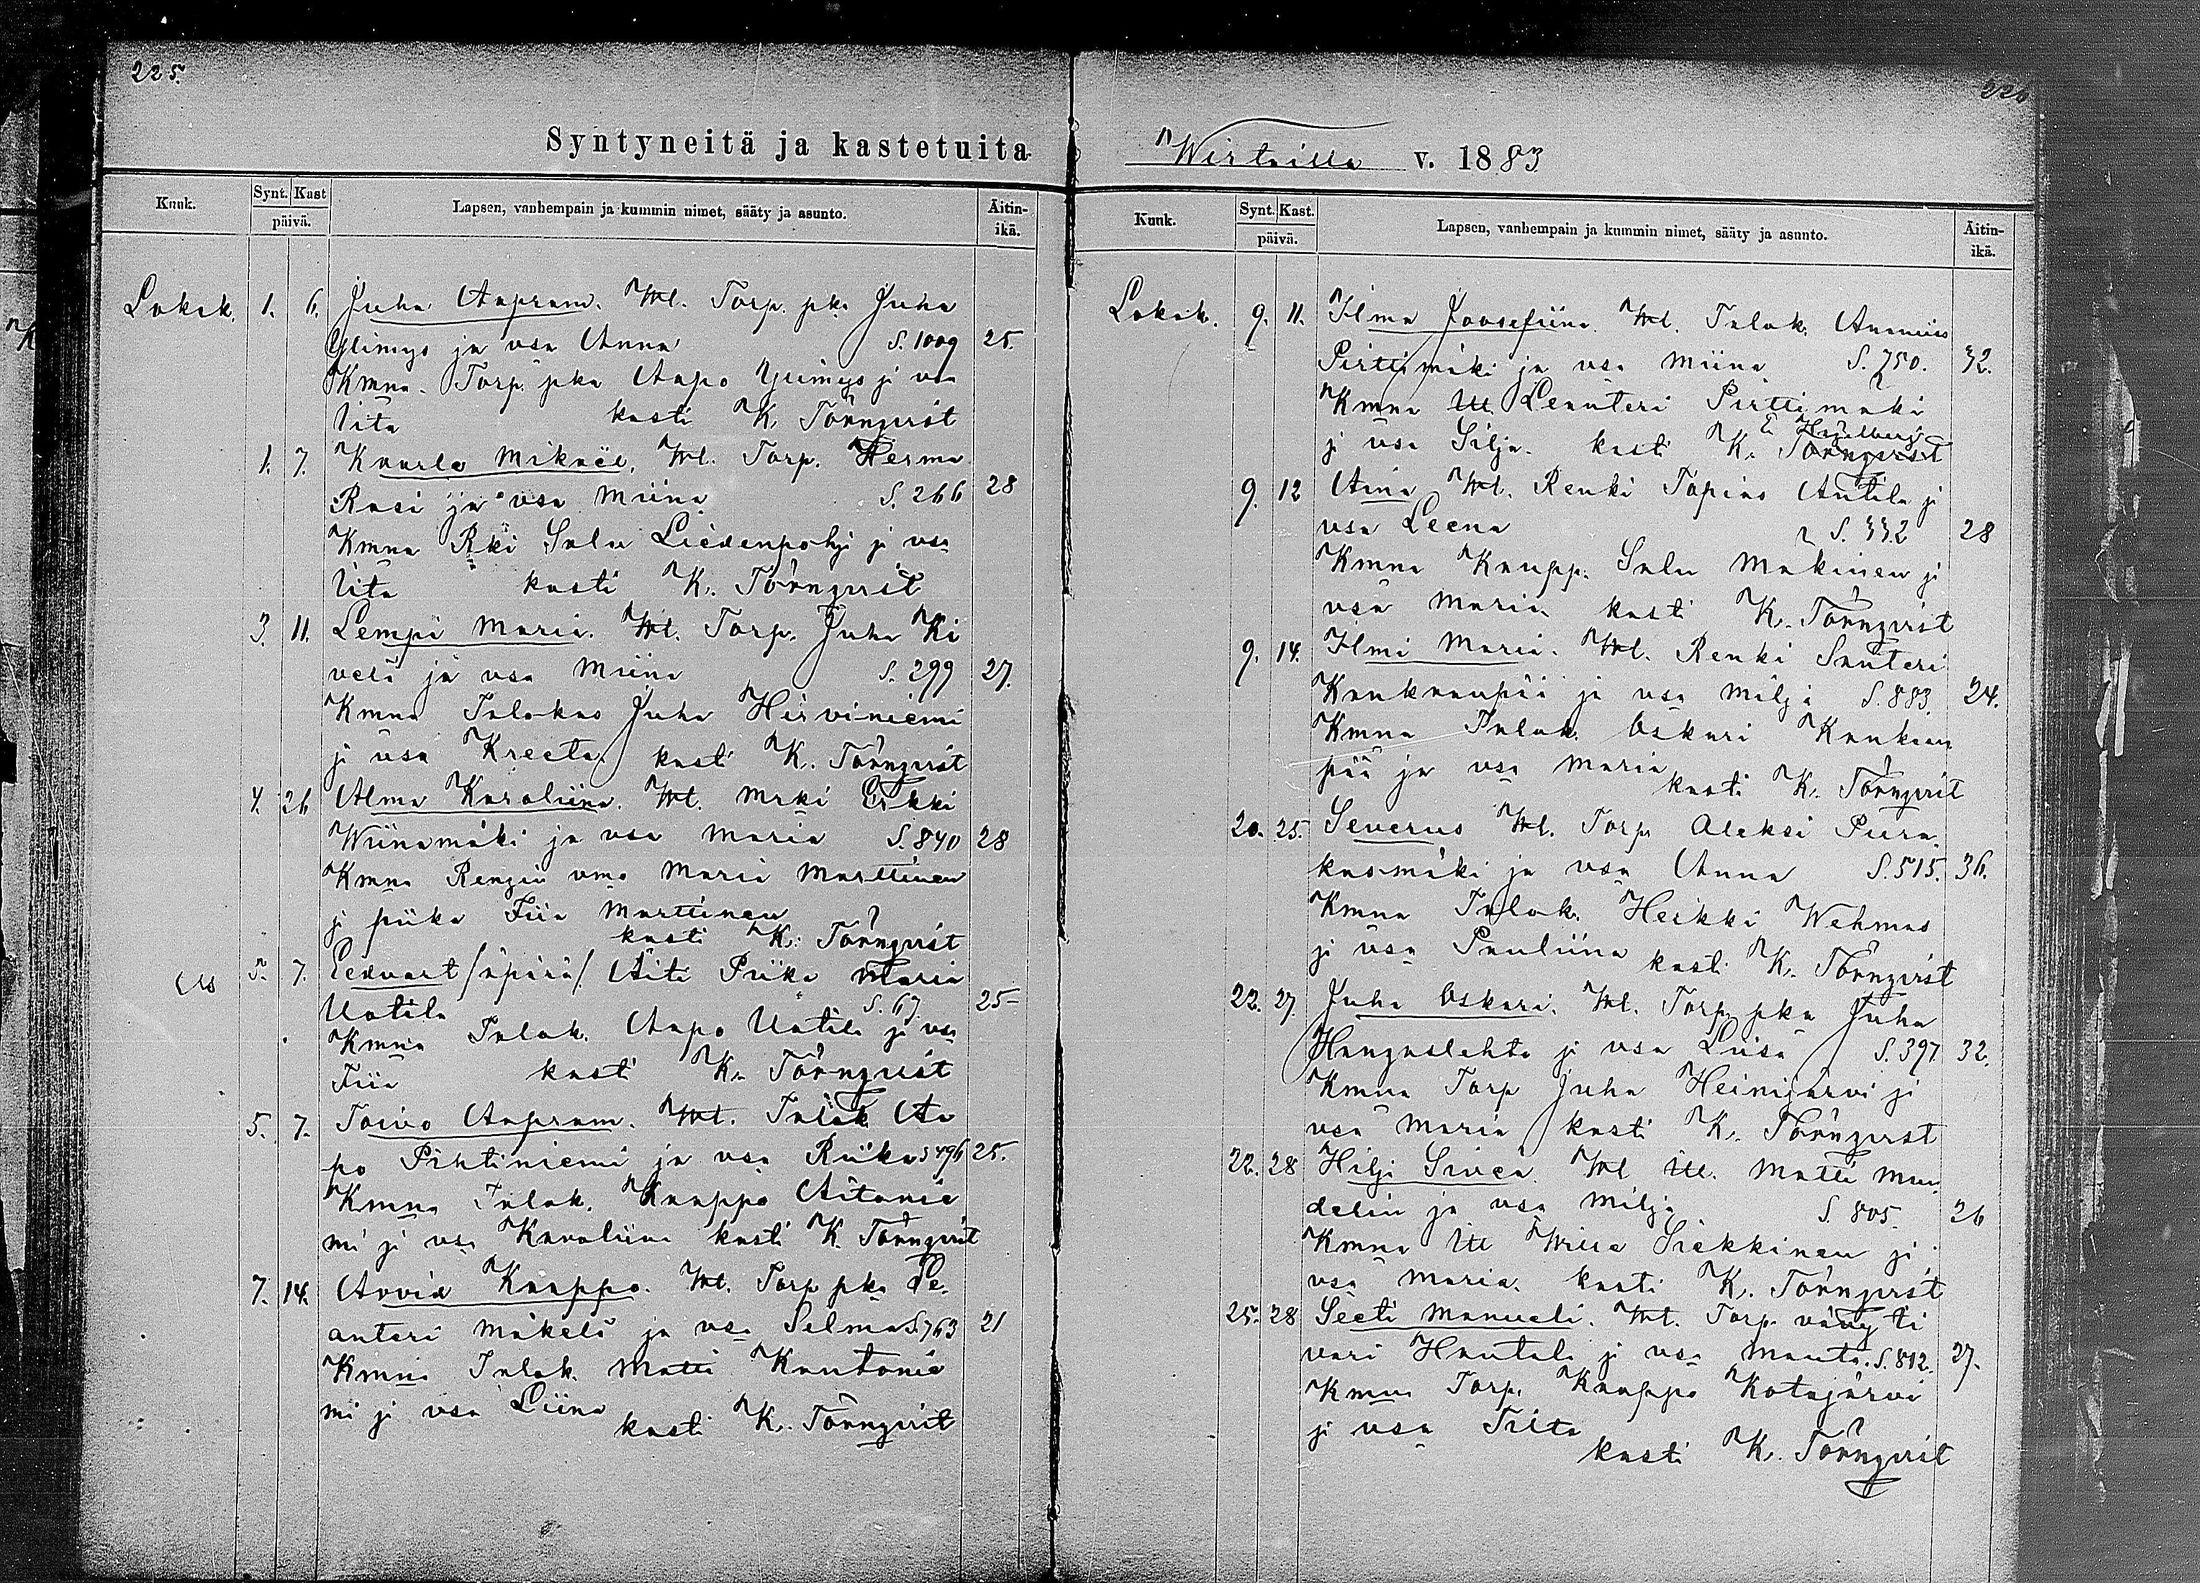 225.
Syntyneitä ja kastetuita
Kuuk. Synt. Kast päivä. Lapsen, vanhempain ja kummin nimet, sääty ja asunto. Äitin-ikä.
Lokak. 1. 6. Juha Aapram. Wl. Torp. pka Juha
Ylimys ja vsa Anna S. 1009 25.
Kmna. Torp. pka Aapo Ylimys ji vsa
Iita kasti K. Törnqvist
1. 7. Kaarle Mikaël, Wl. Torp. Herma
Rasi ja vsa Miina S. 266 28
Kmna Rki Salu Liedenpohji ji vsa
Iita kasti K. Törnqvist
3. 11. Lempi Maria. Wl. Torp. Juha Ki
velä ja vsa Miina S. 299 27.
Kmna Talokas Juha Hirviniemi
ji vsa Kreeta kasti K. Törnqvist
4. 26 Alma Karoliina. Wl. Mrki Erkki
Wiinamäki ja vsa Maria S. 840 28
Kmna Rengin vmo Maria Marttinen
ji piika Fiia Marttinen
kasti K. Törnqvist
5. 7. Eedvart /äpärä/ Äiti Piika Maria
Uotila S. 67. 25
Kmna Talok. Aapo Uotila ji vsa
Fiia kasti K. Törnqvist
5. 7. Toivo Aapram. Wl. Talok Aa
po Pihtiniemi ja vsa Riika S 496 25.
Kmna Talok. Kaappo Aitonie
mi ji vsa Karoliina kasti K. Törnqvist
7. 14. Arvid Kaappo. Wl. Torp pka Le
anteri Mäkelä ja vsa Selma S 763 21
Kmna Talok. Matti Kautonie
mi ji vsa Liina
kasti K. Törnqvist
226
Wirtailla v. 1883
Kuuk. Synt. Kast. päivä. Lapsen, vanhempain ja kummin nimet, sääty ja asunto. Äitin-ikä.
Lokak. 9. 11. Ilma Joosefiina. Wl. Talok. Ananias
Pirttimäki ja vsa Miina S. 750. 32.
Kmna Itl. Leanteri Pirttimäki
ji vsa Silja. kasti K. Törnqvist
9. 12 Aina Wl. Renki Topias Antila ji
vsa Leena S. 332 28
Kmna Kaupp. Salu Mäkinen ji
vsa Maria kasti K. Törnqvist
9. 14. Ilmi Maria. Wl. Renki Santeri
Kankaanpää ja vsa Milja S. 883. 24.
Kmna Talok. Oskari Kankaan
pää ja vsa Maria
kasti K. Törnqvist
20. 25. Severus Wl. Torp. Aleksi Pura
kasmäki ja vsa Anna S. 515. 36.
Kmna Talok. Heikki Wehmas
ji vsa Pauliina kasti K. Törnqvist
22. 27. Juha Oskari. Wl. Torp. pka Juha
Hangaslahta ji vsa Luisa S. 397 32.
Kmna Torp Juha Heinijärvi ji
vsa Maria kasti K. Törnqvist
22. 28 Hilji Sivea. Wl Itl. Matti Mun
delin ja vsa Milja S. 805. 26
Kmna Itl Wille Siekkinen ji
vsa Maria. kasti K. Törnqvist
25. 28 Seeti Manueli. Wl. Torp. vävy Ii
vari Hautala ji vsa Manta. S. 812. 27.
Kmna Torp. Kaappo Kotajärvi
ji vsa Iita
kasti K. Törnqvist